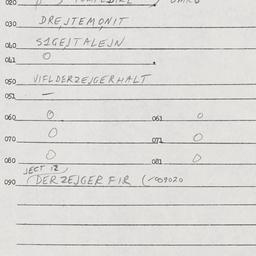 020
030 DREJTEMONIT
040 SIGEJTALEJN
041 0
050 VIFLDERZEJGERHALT
051 —
060 0 061 0
070 0 071 0
080 0 081 0
JECT 12)
090 (DERZEJGER FIR (